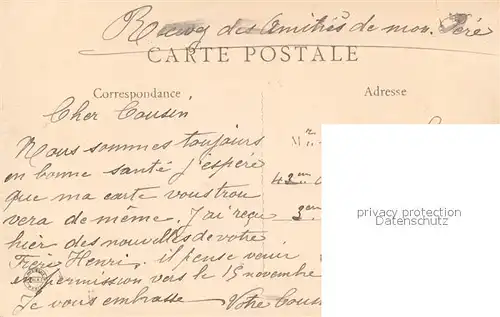 Recevez des Amitiés de mon Père
CARTE POSTALE
Correspondance
Adresse
Cher Cousin
Nous sommes toujours
en bonne santé j'espére
que ma carte vous trou
vera de même. J'ai reçu
hier des nouvelles de votre
Frère Henri. il pense venir
en permission vers le 15 novembre
Je vous embrasse Votre Cous
Mr
42me
3me
privacy protection
Datenschutz